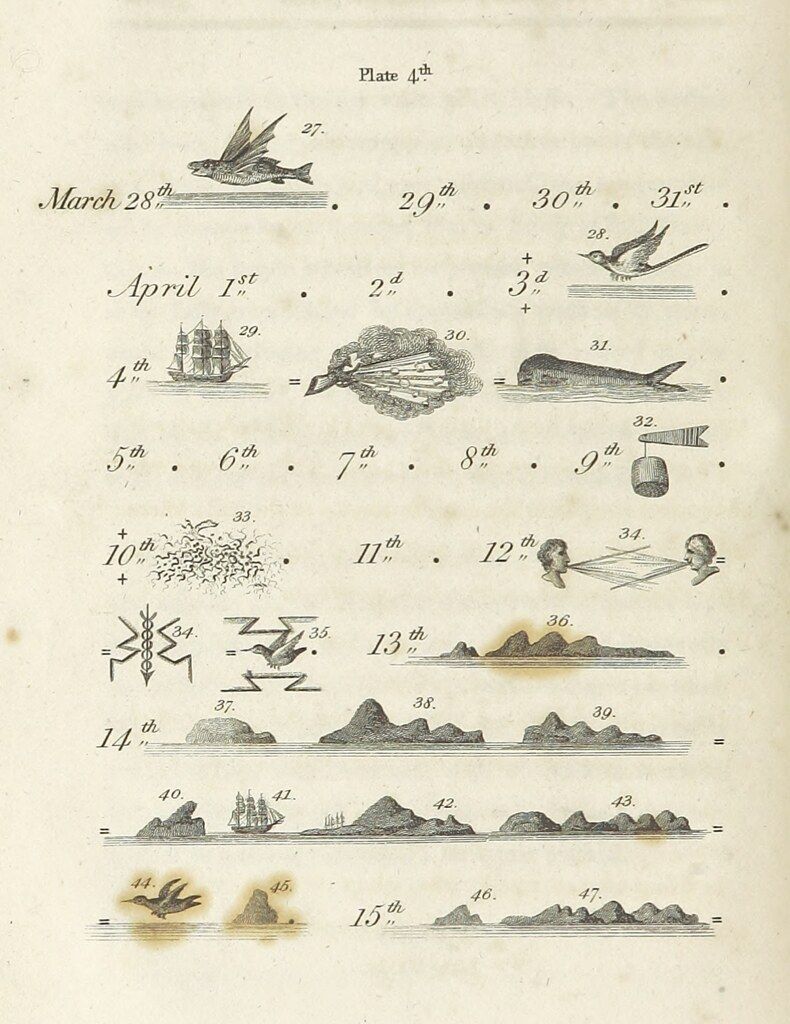 Plate 4th
27.
March 28th . 29th . 30th . 31st .
28.
April 1st . 2d . + 3d + .
29. 30. 31.
4th = = .
32.
5th . 6th . 7th . 8th . 9th .
33. 34.
+ 10th + . 11th . 12th =
= 34. = 35. . 13th 36. .
37. 38. 39.
14th =
40. 41. 42. 43.
= =
44. 45. 46. 47.
= . 15th =